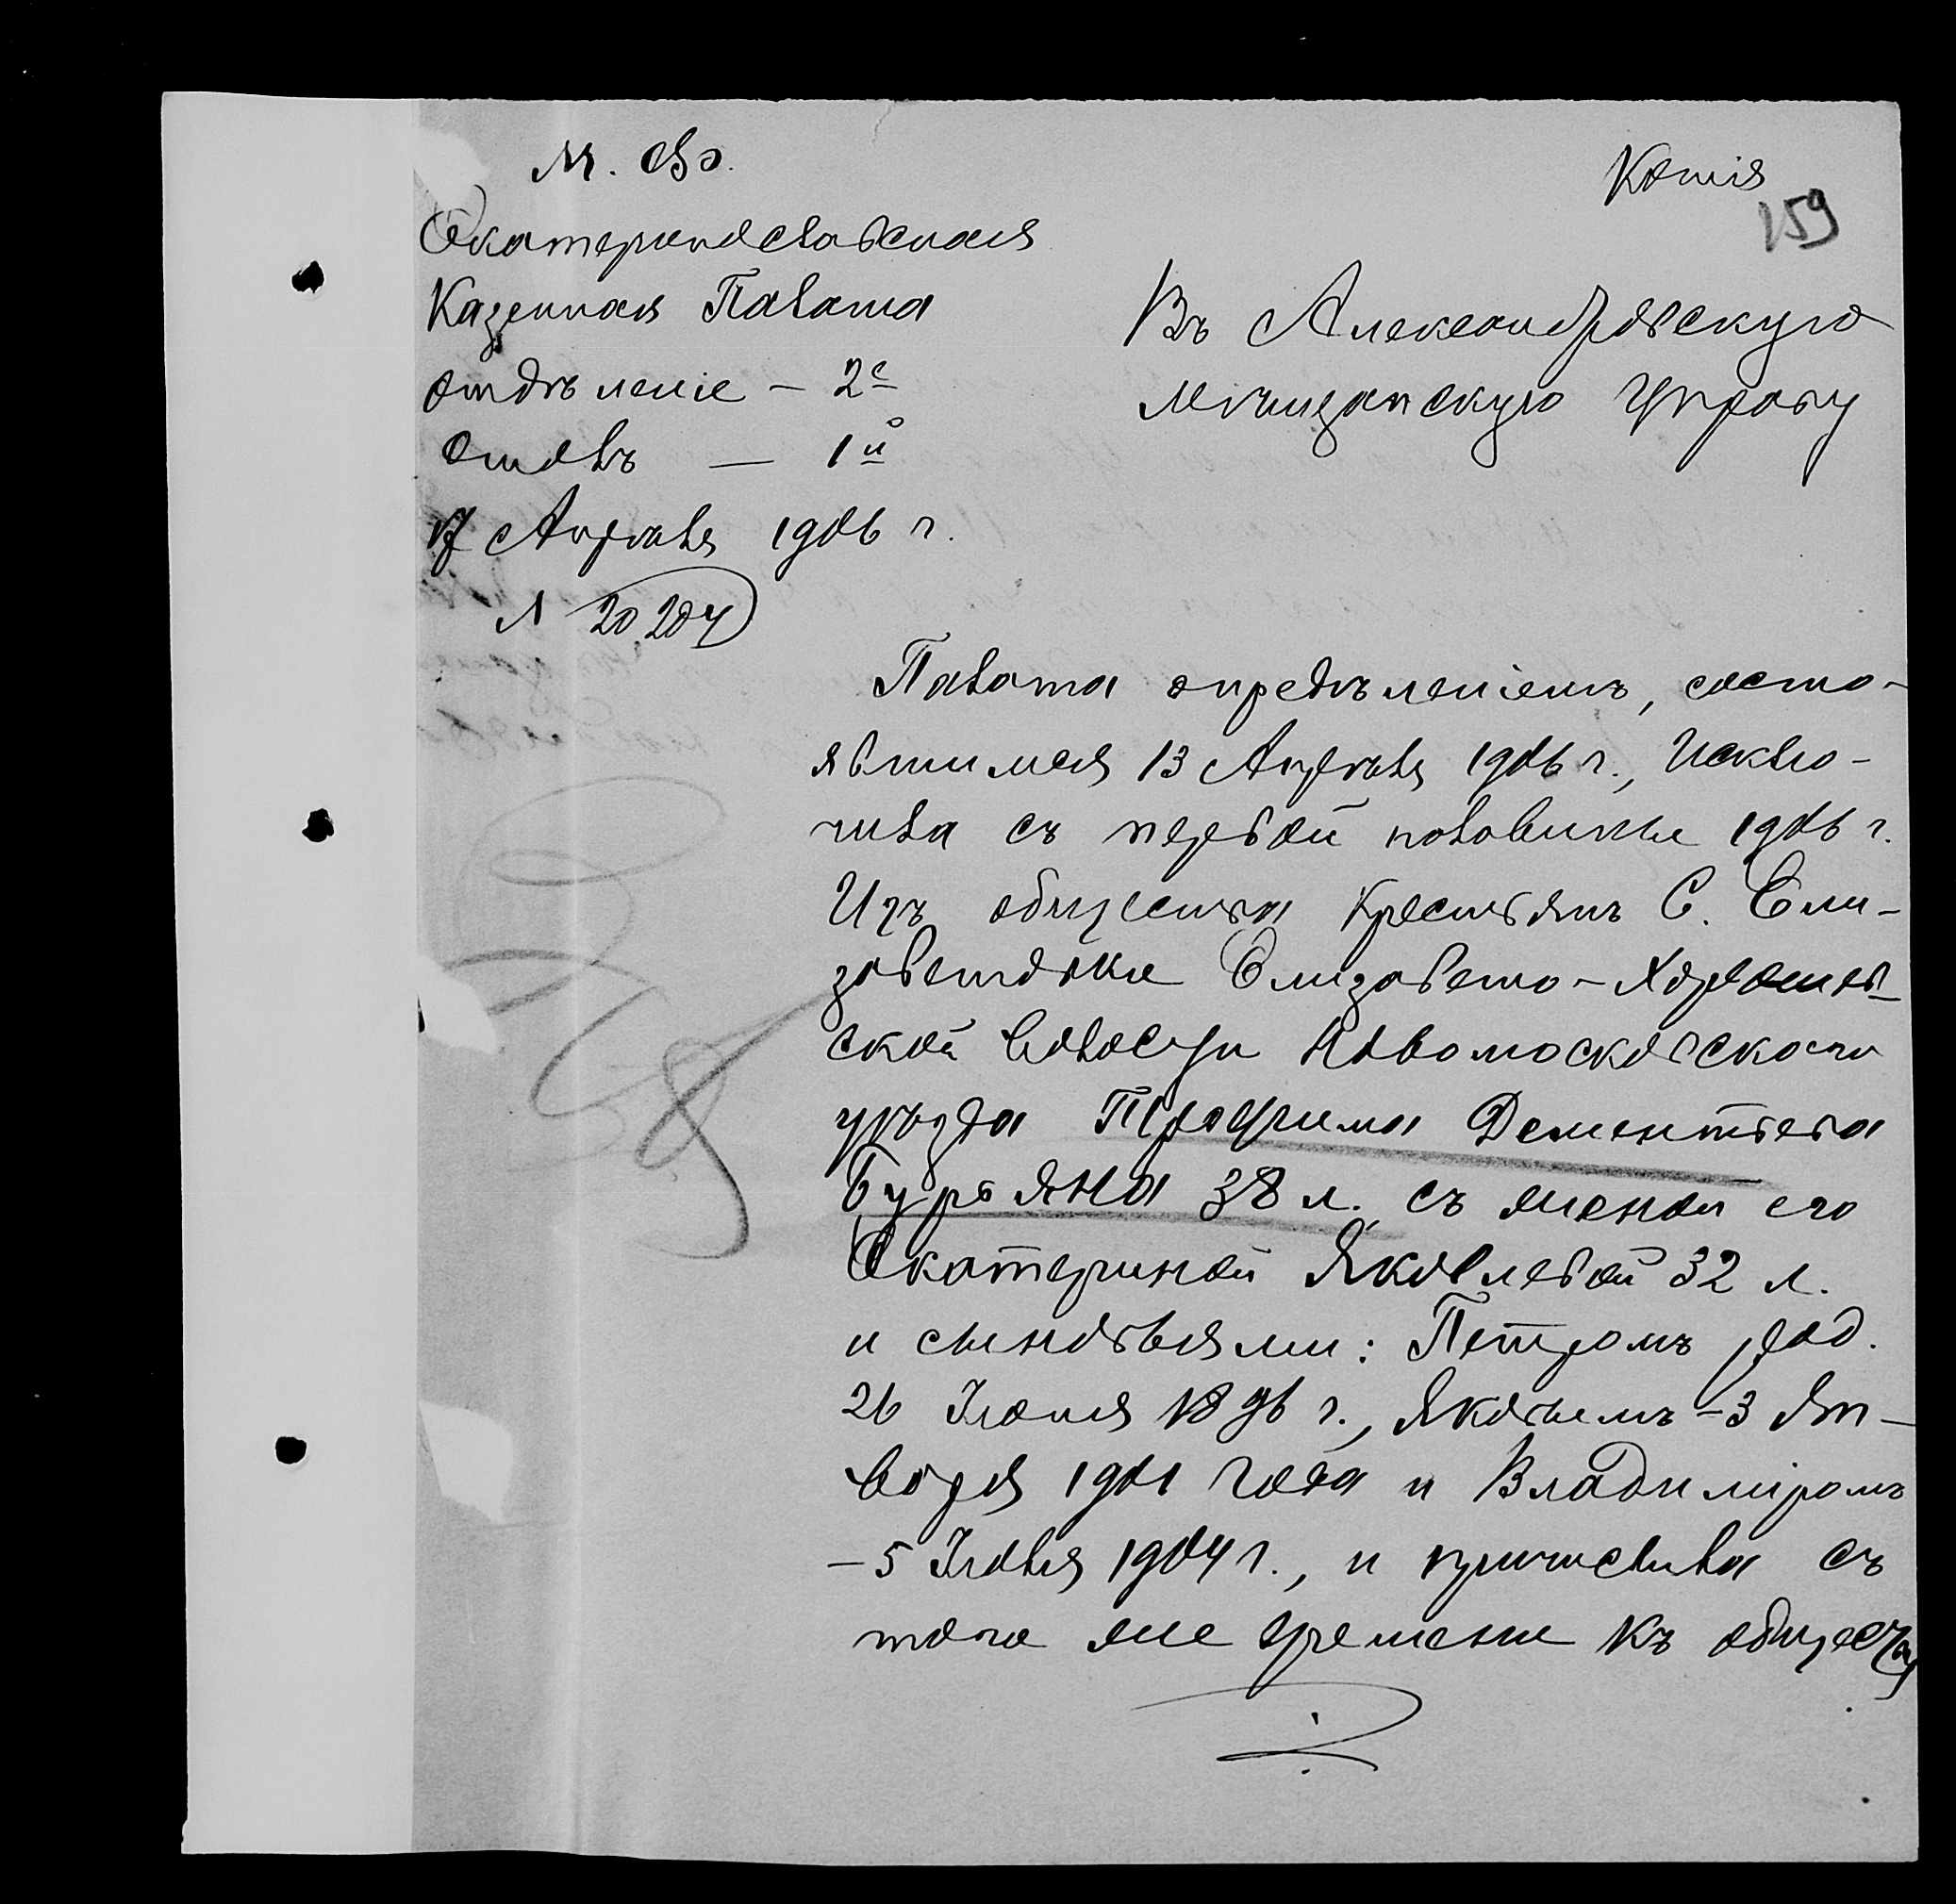 М. Ф.
Копія
159
Екатеринославская
Казенная Палата
отдѣленіе – 2е
столъ — 1й
17 Апрѣля 1906 г.
№ 20204
Въ Александровскую
мѣщанскую Управу
Палата опредѣленіемъ, состо-
явшимся 13 Апрѣля 1906 г., исклю-
чила съ первой половины 1906 г.
Изъ общества крестьянъ С. Ели-
заветовки Елизавето-Хорошев-
ской волости Новомосковскаго
уѣзда Трофима Дементьева
Бурьяна 38 л., съ женой его
Екатериной Яковлевой 32 л.
и сыновьями: Петромъ род.
26 Іюня 1896 г., Яковомъ – 3 Ян-
варя 1901 года и Владиміромъ
– 5 Іюля 1904 г., и причислила съ
того же времени къ обществу